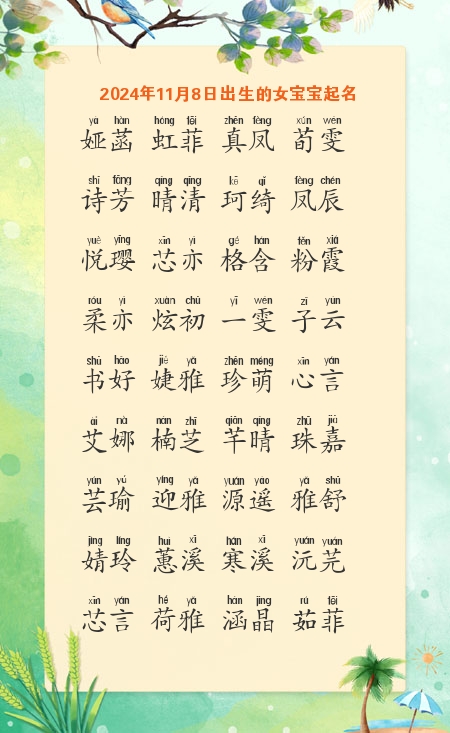 2024年11月8日出生的女宝宝起名
yà hàn hóng fěi zhēn fèng xún wén
娅菡 虹菲 真凤 荀雯
shī fāng qíng qīng kē qǐ fèng chén
诗芳 晴清 珂绮 凤辰
yuè yīng xīn yì gé hán fěn xiá
悦璎 芯亦 格含 粉霞
róu yì xuàn chū yī wén zǐ yún
柔亦 炫初 一雯 子云
shū hǎo jié yǎ zhēn méng xīn yán
书好 婕雅 珍萌 心言
ài nà nán zhī qiān qíng zhū jiā
艾娜 楠芝 芊晴 珠嘉
yún yú yíng yǎ yuán yáo yǎ shū
芸瑜 迎雅 源遥 雅舒
jīng líng huì xī hán xī yuán yuán
婧玲 蕙溪 寒溪 沅芫
xīn yán hé yǎ hán jīng rú fěi
芯言 荷雅 涵晶 茹菲